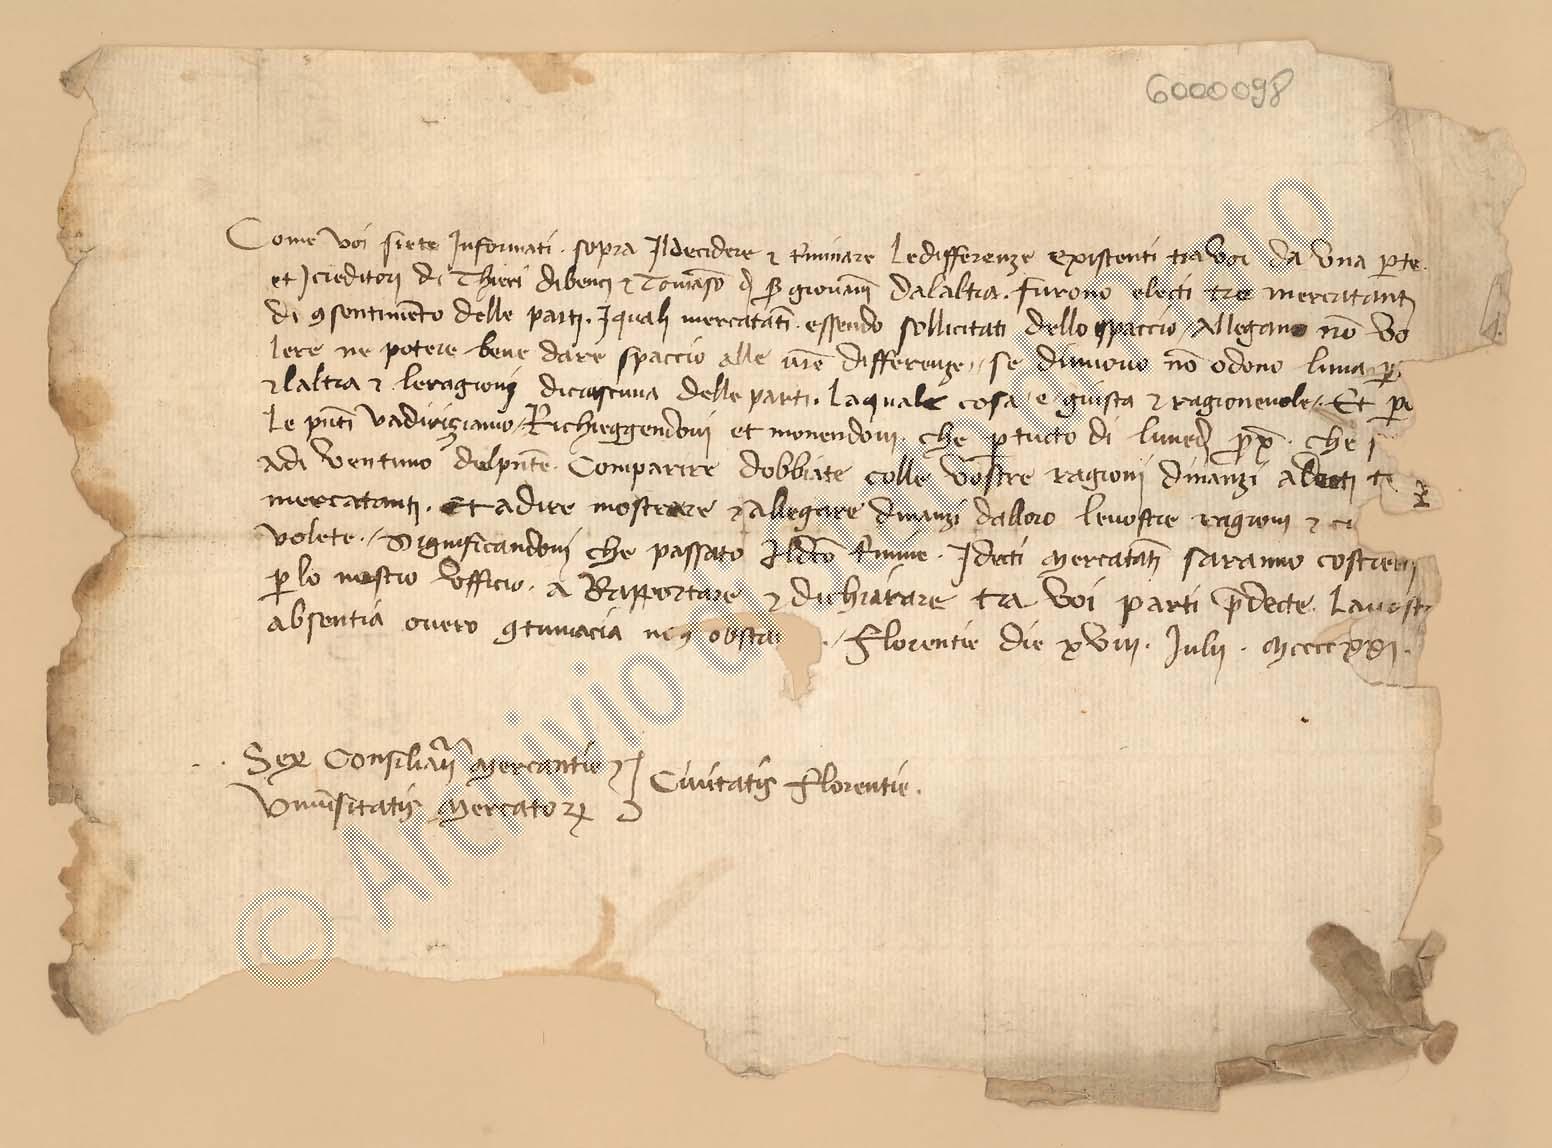 6000098
Come voi siete Informati · sopra Ildecidere & t̄minare ledifferenze existenti tra voi da una ꝑte ·
et I creditori di Thieri di benci & Tomaso d ß giovanni dalaltra · furono electi tre mercatanti
di ꝯsentimēto delle parti · Iquali mercatāti · essendo sollicitati dello spaccio / Allegano nō vo
lere ne potere bene dare spaccio alle vr̄e differenze // se dinuovo nō odono luna ꝑ
& laltra & leragioni diciascuna delle parti · laquale cosa / e / giusta & ragionevole / · Et ꝑ
le pn̄ti vadiriziamo / Richieggendovi et monendovi · che ꝑ tucto di lunedi ꝓx̄ · che
adi ventuno delpn̄te · Comparire dobbiate colle vostre ragioni dinanzi a decti
mercatanti · Et adire mostrare & allegare dinanzi dalloro levostre ragioni &
volete · / Significandovi che passato Ildc̄o t̄mine · I decti mercatāti saranno costrecti
ꝑ lo nostro ufficio · a Rapportare & dichiarare tra voi parti p̄decte · Lavostr
absentia overo ꝯtumacia nō obsta · / Florentie die xviii · Iulii · Mccccxxi ·
Sex Consiliarii Mercantie &
Univ̄sitatis Mercatoꝝ
Civitatis Florentie ·
© Archivio di Stato